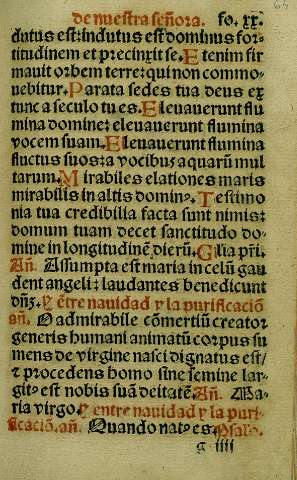 de nuestra señora. fo. xx.
dutus est: indutus est dominus for-
titudinem et precinxit se. Etenim fir
mauit orbem terre: qui non commo-
uebitur. Parata sedes tua deus ex
tunc a seculo tu es. Eleuauerunt flu
mina domine: eleuauerunt flumina
vocem suam. Eleuauerunt flumina
fluctus suos: a vocibus aquarũ mul
tarum. Mirabiles elationes maris
mirabilis in altis dominꝰ. Testimo
nia tua credibilia facta sunt nimis:
domum tuam decet sanctitudo do-
mine in longitudinẽ dierũ. Glia pr̃i.
Añ. Assumpta est maria in celũ gau
dent angeli: laudantes benedicunt
dñ3. Y entre nauidad y la purificaciõ
añ. O admirabile cõmertiũ creator
generis humani animatũ corpus su
mens de virgine nasci dignatus est/
⁊ procedens homo sine semine lar-
gitꝰ est nobis suã deitatẽ. Añ. Ma-
ria virgo. Y entre nauidad y la puri-
ficaciõ. añ. Quando natꝰ es. Psalo.
g iiij